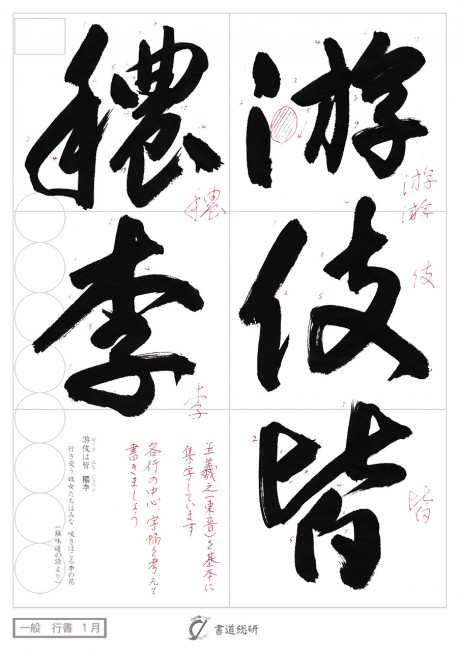 游伎皆
穠李
游
游
伎
皆
穠
李
王羲之(東晋)を基本に
集字しています
各行の中心、字幅を考えて
書きましょう
游伎は皆 穠李
行き交う妓女たちはみな 咲きほこる李の花
(蘇味道の詩より)
一般 行書 1月
書道総研